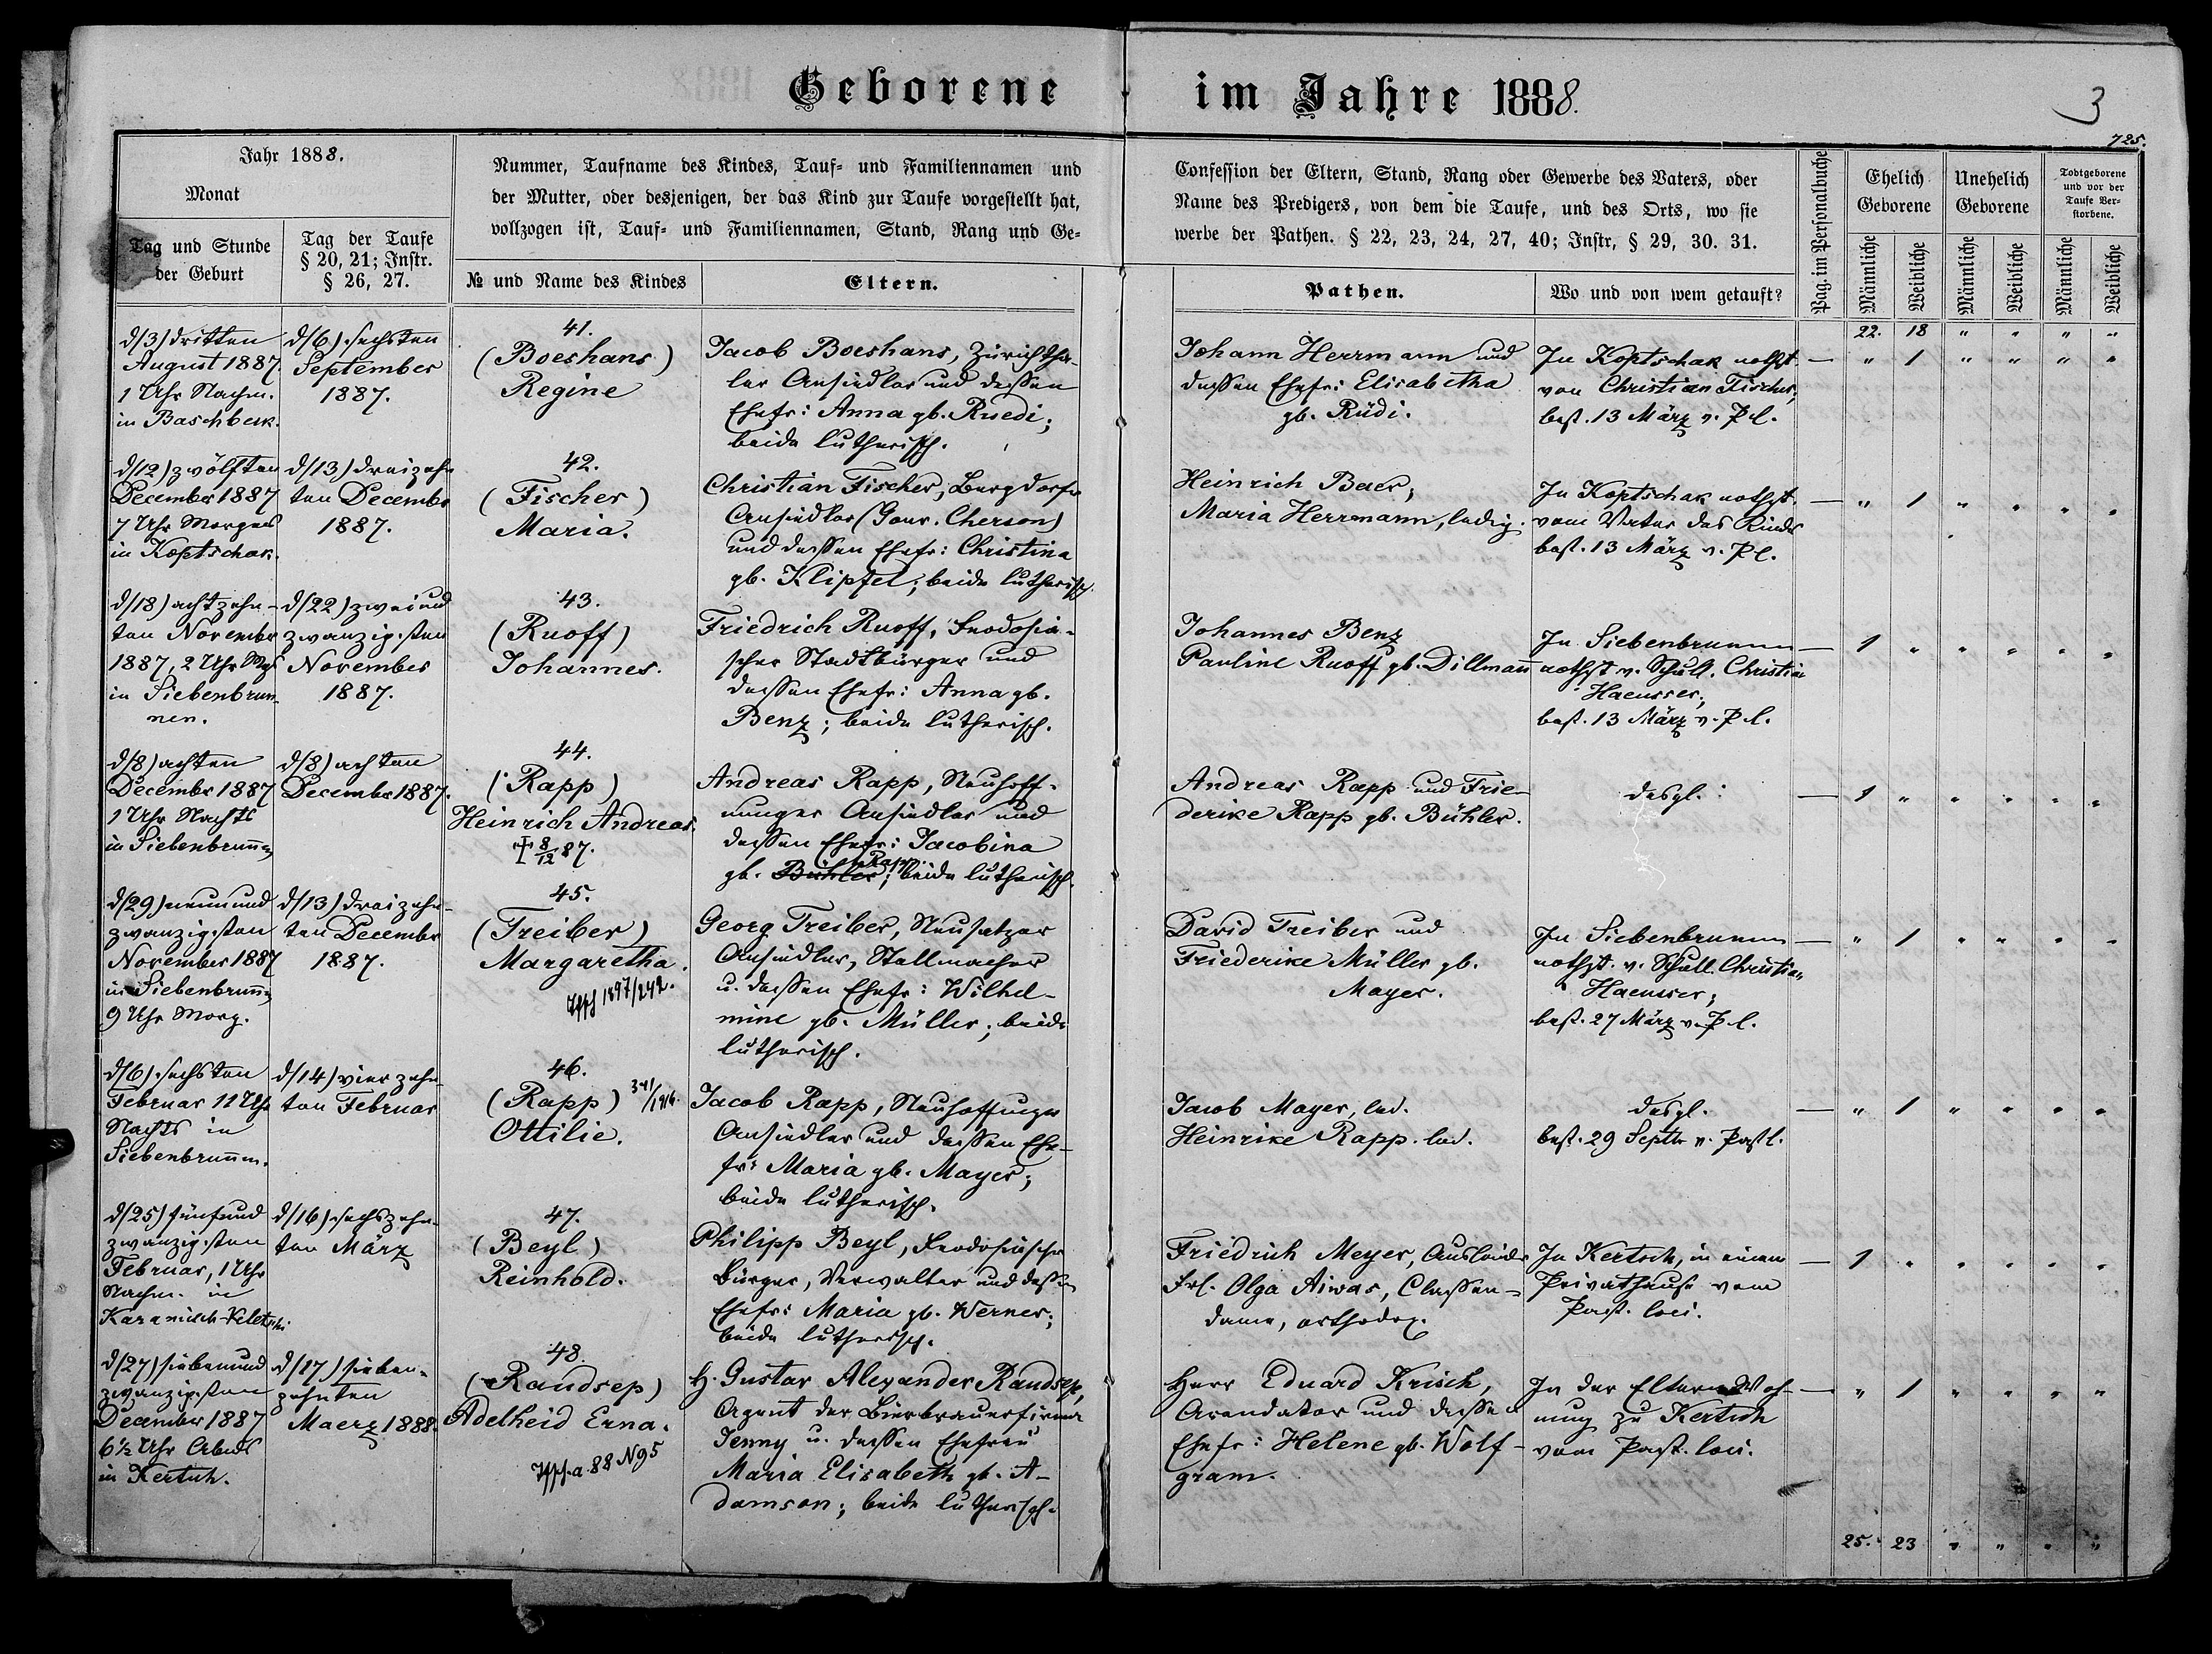 Geborene im Jahre 1888.
3
725.
Jahr 1888.
Monat
Tag und Stunde
der Geburt
Tag der Taufe
§ 20, 21; Instr.
§ 26, 27.
Nummer, Taufname des Kindes, Tauf- und Familiennamen und
der Mutter, oder desjenigen, der das Kind zur Taufe vorgestellt hat,
vollzogen ist, Tauf- und Familiennamen, Stand, Rang und Ge-
№ und Name des Kindes
Eltern.
Confession der Eltern, Stand, Rang oder Gewerbe des Vaters, oder
Name des Predigers, von dem die Taufe, und des Orts, wo sie
werbe der Pathen. § 22, 23, 24, 27, 40; Instr, § 29, 30. 31.
Pathen.
Wo und von wem getauft?
Pag. im Personalbuche
Ehelich
Geborene
Unehelich
Geborene
Todtgeborene
und vor der
Taufe Ver-
storbene.
Männliche
Weibliche
Männliche
Weibliche
Männliche
Weibliche
22. 18 " " " "
d/3) dritten
August 1887.
1 Uhr Nachm.
in Baschbek.
d/6) sechsten
September
1887.
41.
(Boeshans)
Regine
Jacob Boeshans, Zürichtha-
ler Ansiedler und dessen
Ehefr: Anna gb. Ruedi;
beide lutherisch.
Johann Herrmann und
dessen Ehefr: Elisabetha
gb. Rüdi.
In Koptschak nothgt.
von Christian Fischer,
best. 13 März v. P. l.
— " 1 " " " "
d/12) zwölften
December 1887
7 Uhr Morgens
in Koptschak.
d/13) dreizehn
ten December
1887.
42.
(Fischer)
Maria.
Christian Fischer, Bergdorfer
Ansiedler (Gouv. Cherson)
und dessen Ehefr: Christina
gb. Klipfel; beide lutherisch.
Heinrich Baer,
Maria Herrmann, ledig.
In Koptschak nothgt.
vom Vater des Kindes
best. 13 März v. P. l.
— " 1 " " " "
d/18) achtzehn-
ten November
1887, 2 Uhr Mgs
in Siebenbrun
nen.
d/22) zweiund
zwanzigsten
November
1887.
43.
(Ruoff)
Johannes.
Friedrich Ruoff, Feodosia-
scher Stadtbürger und
dessen Ehefr: Anna gb.
Benz; beide lutherisch.
Johannes Benz
Pauline Ruoff gb. Dillmann
In Siebenbrunnen
nothgt v. Schull. Christian
Haeusser;
best. 13 März v. P. l.
— 1 " " " " "
d/8) achten
December 1887
1 Uhr Nachts
in Siebenbrunn
d/8) achten
December 1887.
44.
(Rapp)
Heinrich Andreas.
† 8/12 87.
Andreas Rapp, Neuhoff-
nunger Ansiedler und
dessen Ehefr: Jacobina
gb. Bühler Rapp; beide lutherisch.
Andreas Rapp und Frie-
derike Rapp gb. Bühler.
desgl.
— 1 " " " " "
d/29) neunund
zwanzigsten
November 1887
in Siebenbrunn
9 Uhr Morg.
d/13) dreizehn-
ten December
1887.
45.
(Treiber)
Margaretha.
1897/242.
Georg Treiber, Neusatzer
Ansiedler, Stellmacher
u. dessen Ehefr: Wilhel-
mine gb. Müller; beide
lutherisch.
David Treiber und
Friederike Müller gb.
Mayer.
In Siebenbrunnen
nothgt. v. Schull. Christian
Haeusser;
best. 27 März v. P. l.
— " 1 " " " "
d/6) sechsten
Februar 11 Uhr
Nachts in
Siebenbrunnen.
d/14) vierzehn-
ten Februar
46.
(Rapp) 341/1916.
Ottilie.
Jacob Rapp, Neuhoffnunger
Ansiedler und dessen Ehe-
fr: Maria gb. Mayer;
beide lutherisch.
Jacob Mayer, led.
Heinrike Rapp. led.
desgl.
best. 29 Septbr v. Past l.
— " 1 " " " "
d/25) fünfund
zwanzigsten
Februar, 1 Uhr
Nachm. in
d/16) sechszehn-
ten März
47.
(Beyl)
Reinhold.
Philipp Beyl, Feodosiascher
Bürger, Verwalter und dessen
Ehefr: Maria gb. Werner;
beide lutherisch.
Friedrich Meyer, Ausländer
Frl. Olga Aiwas, Classen-
dame, orthodox.
In Kertsch, in einem
Privathause vom
Past. loci.
— 1 " " " " "
d/27) siebenund
zwanzigsten
December 1887
6½ Uhr Abends
in Kertsch.
d/17) sieben-
zehnten
Maerz 1888.
48.
(Raudsep)
Adelheid Erna.
a. 88 N95
H. Gustav Alexander Raudsep,
Agent der Bierbrauerfirma
Jenny u. dessen Ehefrau
Maria Elisabeth gb. A-
damson; beide lutherisch.
Herr Eduard Krisch,
Arendator und dessen
Ehefr: Helene gb. Wolf-
gram.
In der Eltern Woh-
nung zu Kertsch
vom Past. loci.
— " 1 " " " "
25. 23 " " " "